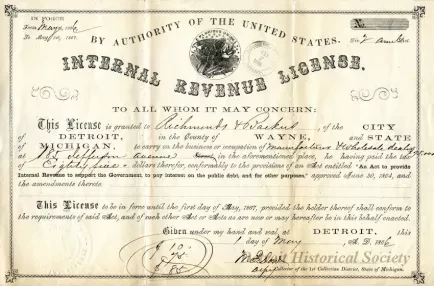 IN FORCE
From May 1, 1866
To May 1st, 1867.
BY AUTHORITY OF THE UNITED STATES.
INTERNAL REVENUE LICENSE.
TO ALL WHOM IT MAY CONCERN:
This License is granted to Richmonds & Backus, of the CITY
OF DETROIT, in the County of WAYNE, and STATE
OF MICHIGAN, to carry on the business or occupation of manufacturers & wholesale dealers
at Jefferson avenue in the aforementioned place, he having paid the tax
of Eighty five dollars therefor, conformably to the provisions of an Act entitled "An Act to provide
Internal Revenue to support the Government, to pay interest on the public debt, and for other purposes," approved June 30, 1864, and
the amendments thereto.
This License to be in force until the first day of May, 1867, provided the holder thereof shall conform to
the requirements of said Act, and of such other Act or Acts as are now or may hereafter be in this behalf enacted.
Given under my hand and seal, at DETROIT, this
1 day of May, A. D. 1866
$ 10
75
$ 85
Collector of the 1st Collection District, State of Michigan.
Detroit Historical Society